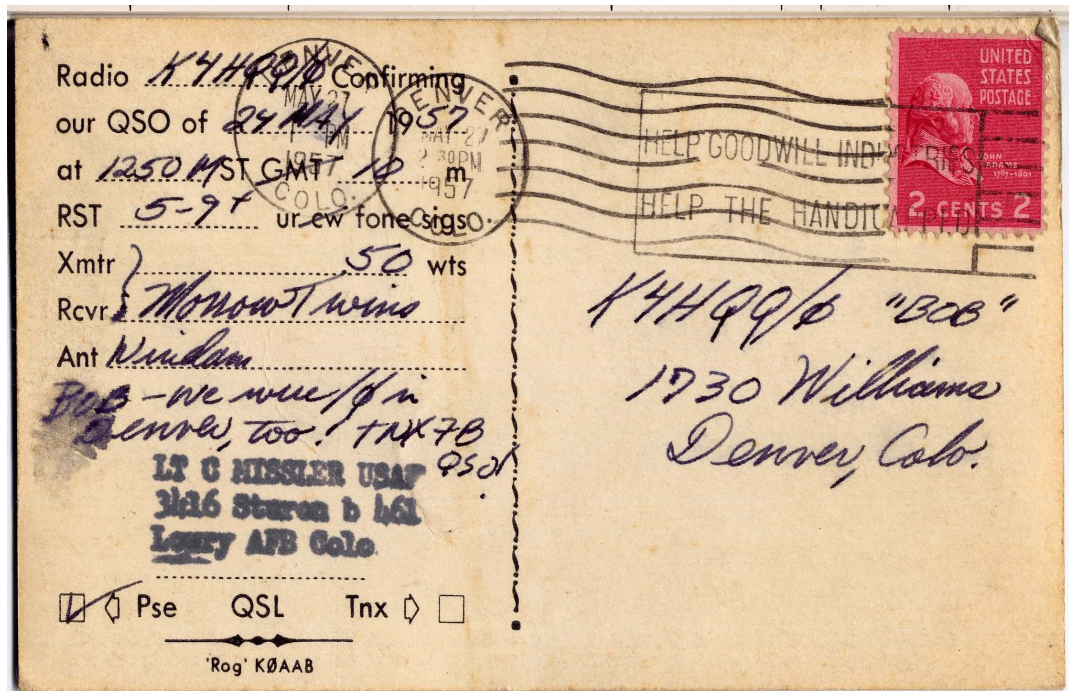 Radio K4HQQ/Ø Confirming
our QSO of 24 MAY 1957
at 1250 MST GMT 10 m
RST 5-9+ ur cw fone sigs
Xmtr 50 wts
Rcvr Morrow Twins
Ant Windom
BOB - we were /Ø in
Denver, too! TNX FB
QSO!
LT C MISSLER USAF
3416 Sturon b 461
Lowry AFB Colo
Pse QSL Tnx
'Rog' KØAAB
DENVER
MAY 27
PM
1957
COLO.
DENVER
MAY 27
2 30 PM
1957
COLO.
HELP GOODWILL INDUSTRIES
HELP THE HANDICAPPED
UNITED
STATES
POSTAGE
JOHN
ADAMS
1797-1801
2 CENTS 2
K4HQQ/Ø "BOB"
1730 Williams
Denver, Colo.